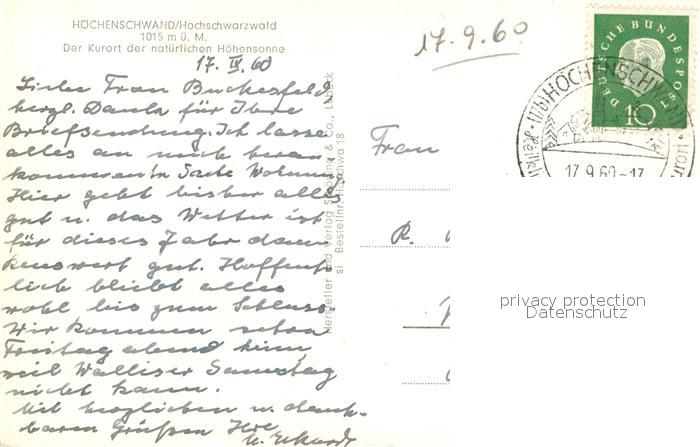 HÖCHENSCHWAND/Hochschwarzwald
1015 m ü. M.
Der Kurort der natürlichen Höhensonne
17. IX. 60
Liebe Frau
herzl. Dank für Ihre
Briefsendung. Ich lasse
alles an mich heran
kommen in Sache Wohnung
Hier geht bisher alles
gut u. das Wetter ist
für dieses Jahr dan
kenswert gut. Hoffent
lich bleibt alles
wohl bis zum Schluss.
Wir kommen schon
Freitag abend heim,
weil Walliser Samstag
nicht kann.
Mit herzlichen u. dank-
baren Grüßen Ihre
Hersteller und Verlag & Co., Lübeck
Bestellnr. Hochwa 18
17.9.60
Frau
DEUTSCHE BUNDESPOST
10
(17b) HÖCHENSCHWAND
17.9.60-17
privacy protection
Datenschutz